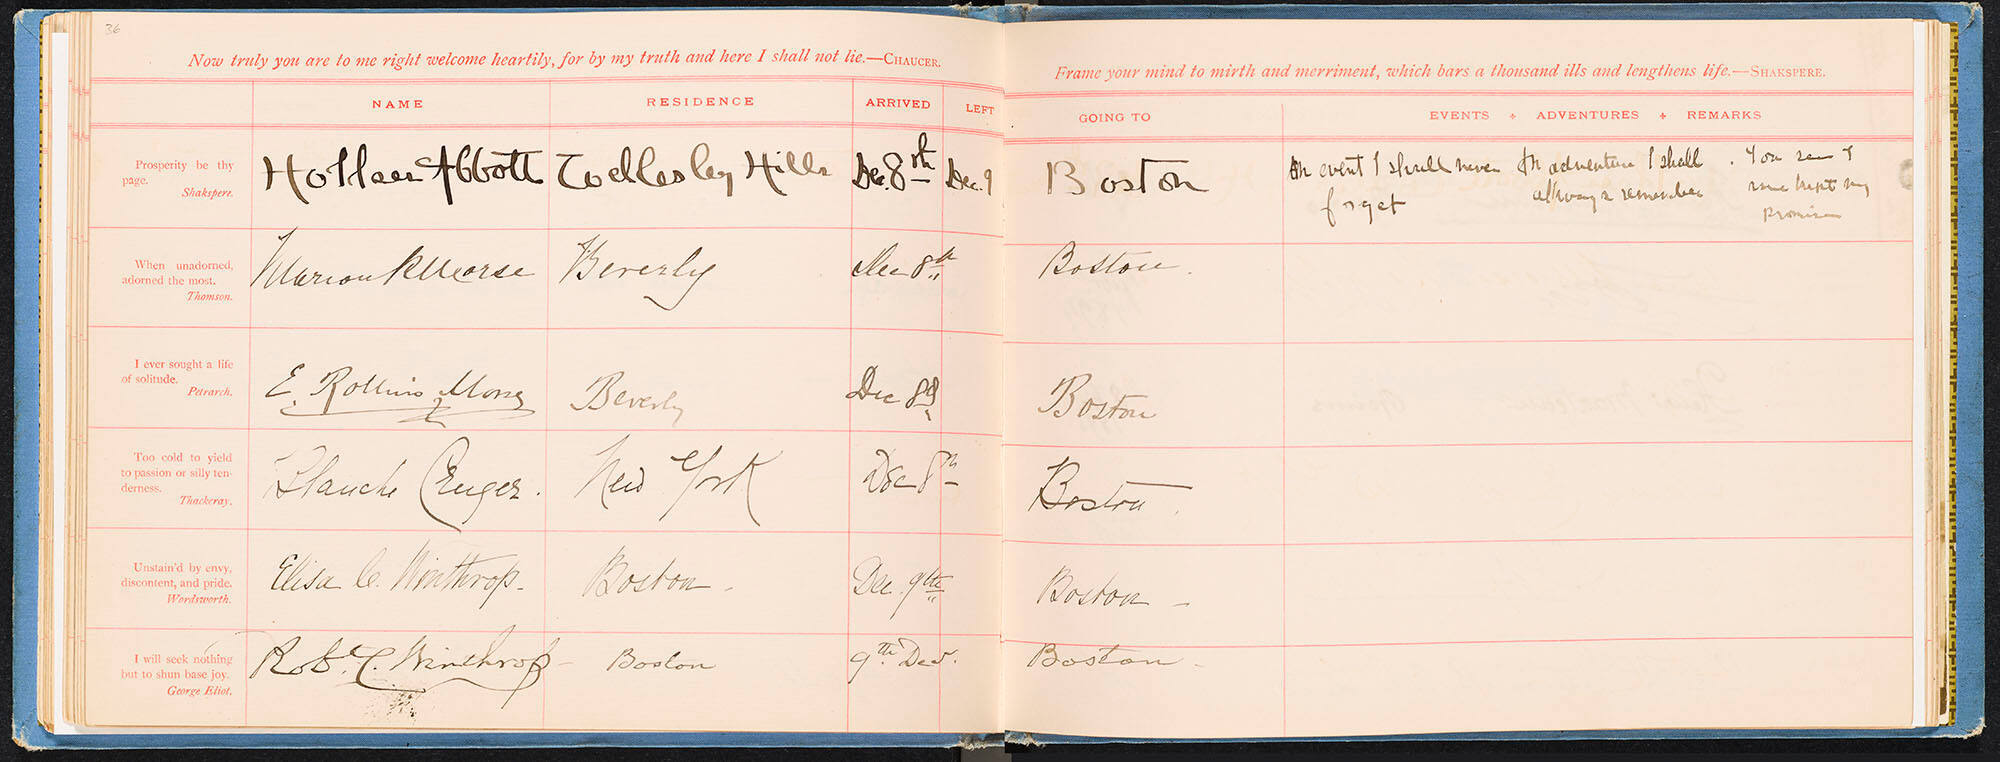 36
Now truly you are to me right welcome heartily, for by my truth and here I shall not lie.—CHAUCER.
NAME RESIDENCE ARRIVED LEFT
Prosperity be thy
page.
Shakspere.
Holker Abbott Wellesley Hills Dec. 8th Dec. 9
When unadorned,
adorned the most.
Thomson.
Marion R Morse Beverly Dec 8th
I ever sought a life
of solitude.
Petrarch.
E. Rollins Morse Beverly Dec 8th
Too cold to yield
to passion or silly ten-
derness.
Thackeray.
Blanche Cruger. New York Dec 8th
Unstain'd by envy,
discontent, and pride.
Wordsworth.
Elisa C. Winthrop- Boston - Dec. 9th
I will seek nothing
but to shun base joy.
George Eliot.
Robt. C. Winthrop- Boston 9th Dec.
Frame your mind to mirth and merriment, which bars a thousand ills and lengthens life.—SHAKSPERE.
GOING TO EVENTS ADVENTURES REMARKS
Boston An event I shall never An adventure I shall . You see I
forget always remember have kept my
promise
Boston.
Boston
Boston.
Boston -
Boston -